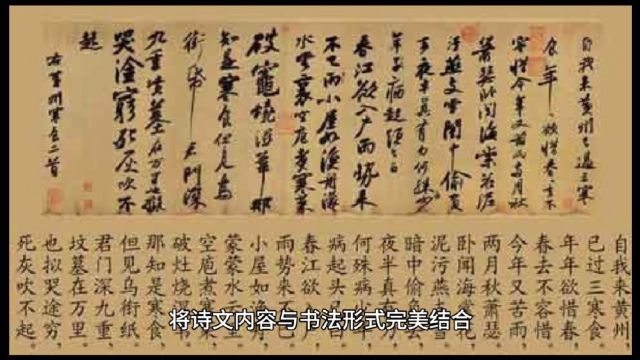 自我來黃州已過三寒
食年年欲惜春春去不
容惜今年又苦雨兩月秋
蕭瑟卧聞海棠花泥
汙燕支雪闇中偷負
去夜半真有力何殊少
年子病起頭已白
春江欲入户雨勢來
不已雨小屋如漁舟濛
濛水雲裏空庖煮寒菜
破竈燒濕葦那
知是寒食但見烏
銜帋君門深
九重墳墓在万里也擬
哭塗窮死灰吹不
起
右黃州寒食二首
自我来黄州
已过三寒食
年年欲惜春
春去不容惜
今年又苦雨
两月秋萧瑟
卧闻海棠
泥污燕支
暗中偷负
夜半真有
何殊病少
病起头已
春江欲入
雨势来不
小屋如渔
蒙蒙水云
空庖煮寒
破灶烧湿
那知是寒食
但见乌衔纸
君门深九重
坟墓在万里
也拟哭途穷
死灰吹不起
将诗文内容与书法形式完美结合